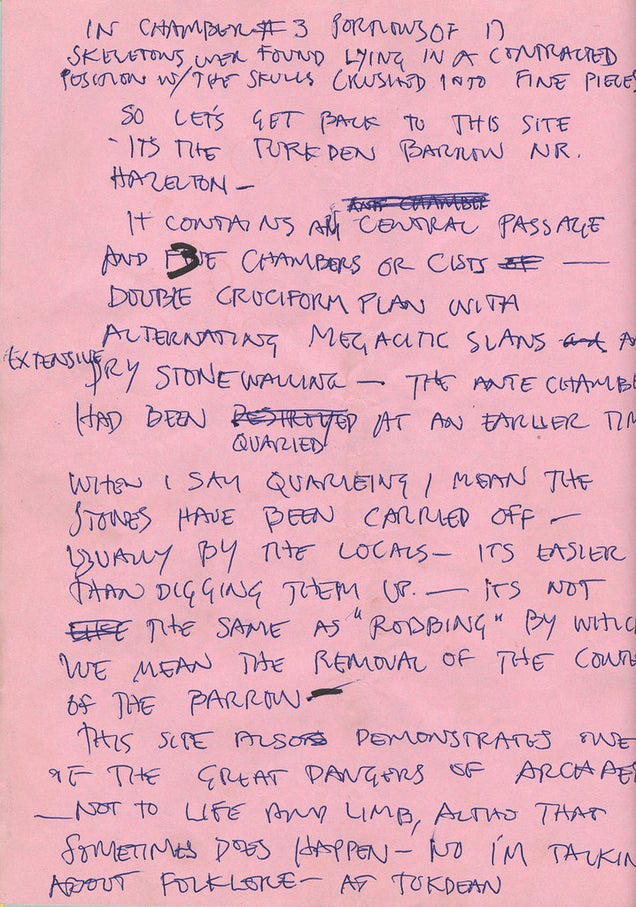 IN CHAMBER # 3 PORTIONS OF 17
SKELETONS WER FOUND LYING IN A CONTRACTED
POSITION W/THE SKULLS CRUSHED INTO FINE PIECES
SO LET'S GET BACK TO THIS SITE
- ITS THE TURKDEN BARROW NR.
HAZELTON —
AND CHAMBER
IT CONTAINS A CENTRAL PASSAGE
AND 3 CHAMBERS OR CISTS OF —
DOUBLE CRUCIFORM PLAN WITH
ALTERNATING MEGALITIC SLANS and A
EXTENSIVE
DRY STONE WALLING — THE ANTE CHAMBE
HAD BEEN DESTROYED AT AN EARLIER TIM
QUARIED
WHEN I SAY QUARREING I MEAN THE
STONES HAVE BEEN CARRIED OFF —
USUALLY BY THE LOCALS — ITS EASIER
THAN DIGGING THEM UP. — ITS NOT
THE SAME AS "ROBBING" BY WHICH
WE MEAN THE REMOVAL OF THE CONTE
OF THE BARROW —
THIS SITE ALSO DEMONSTRATES ONE
OF THE GREAT DANGERS OF ARCHAEO
— NOT TO LIFE AND LIMB, ALTHO THAT
SOMETIMES DOES HAPPEN — NO I'M TALKIN
ABOUT FOLKLORE — AT TURDEAN